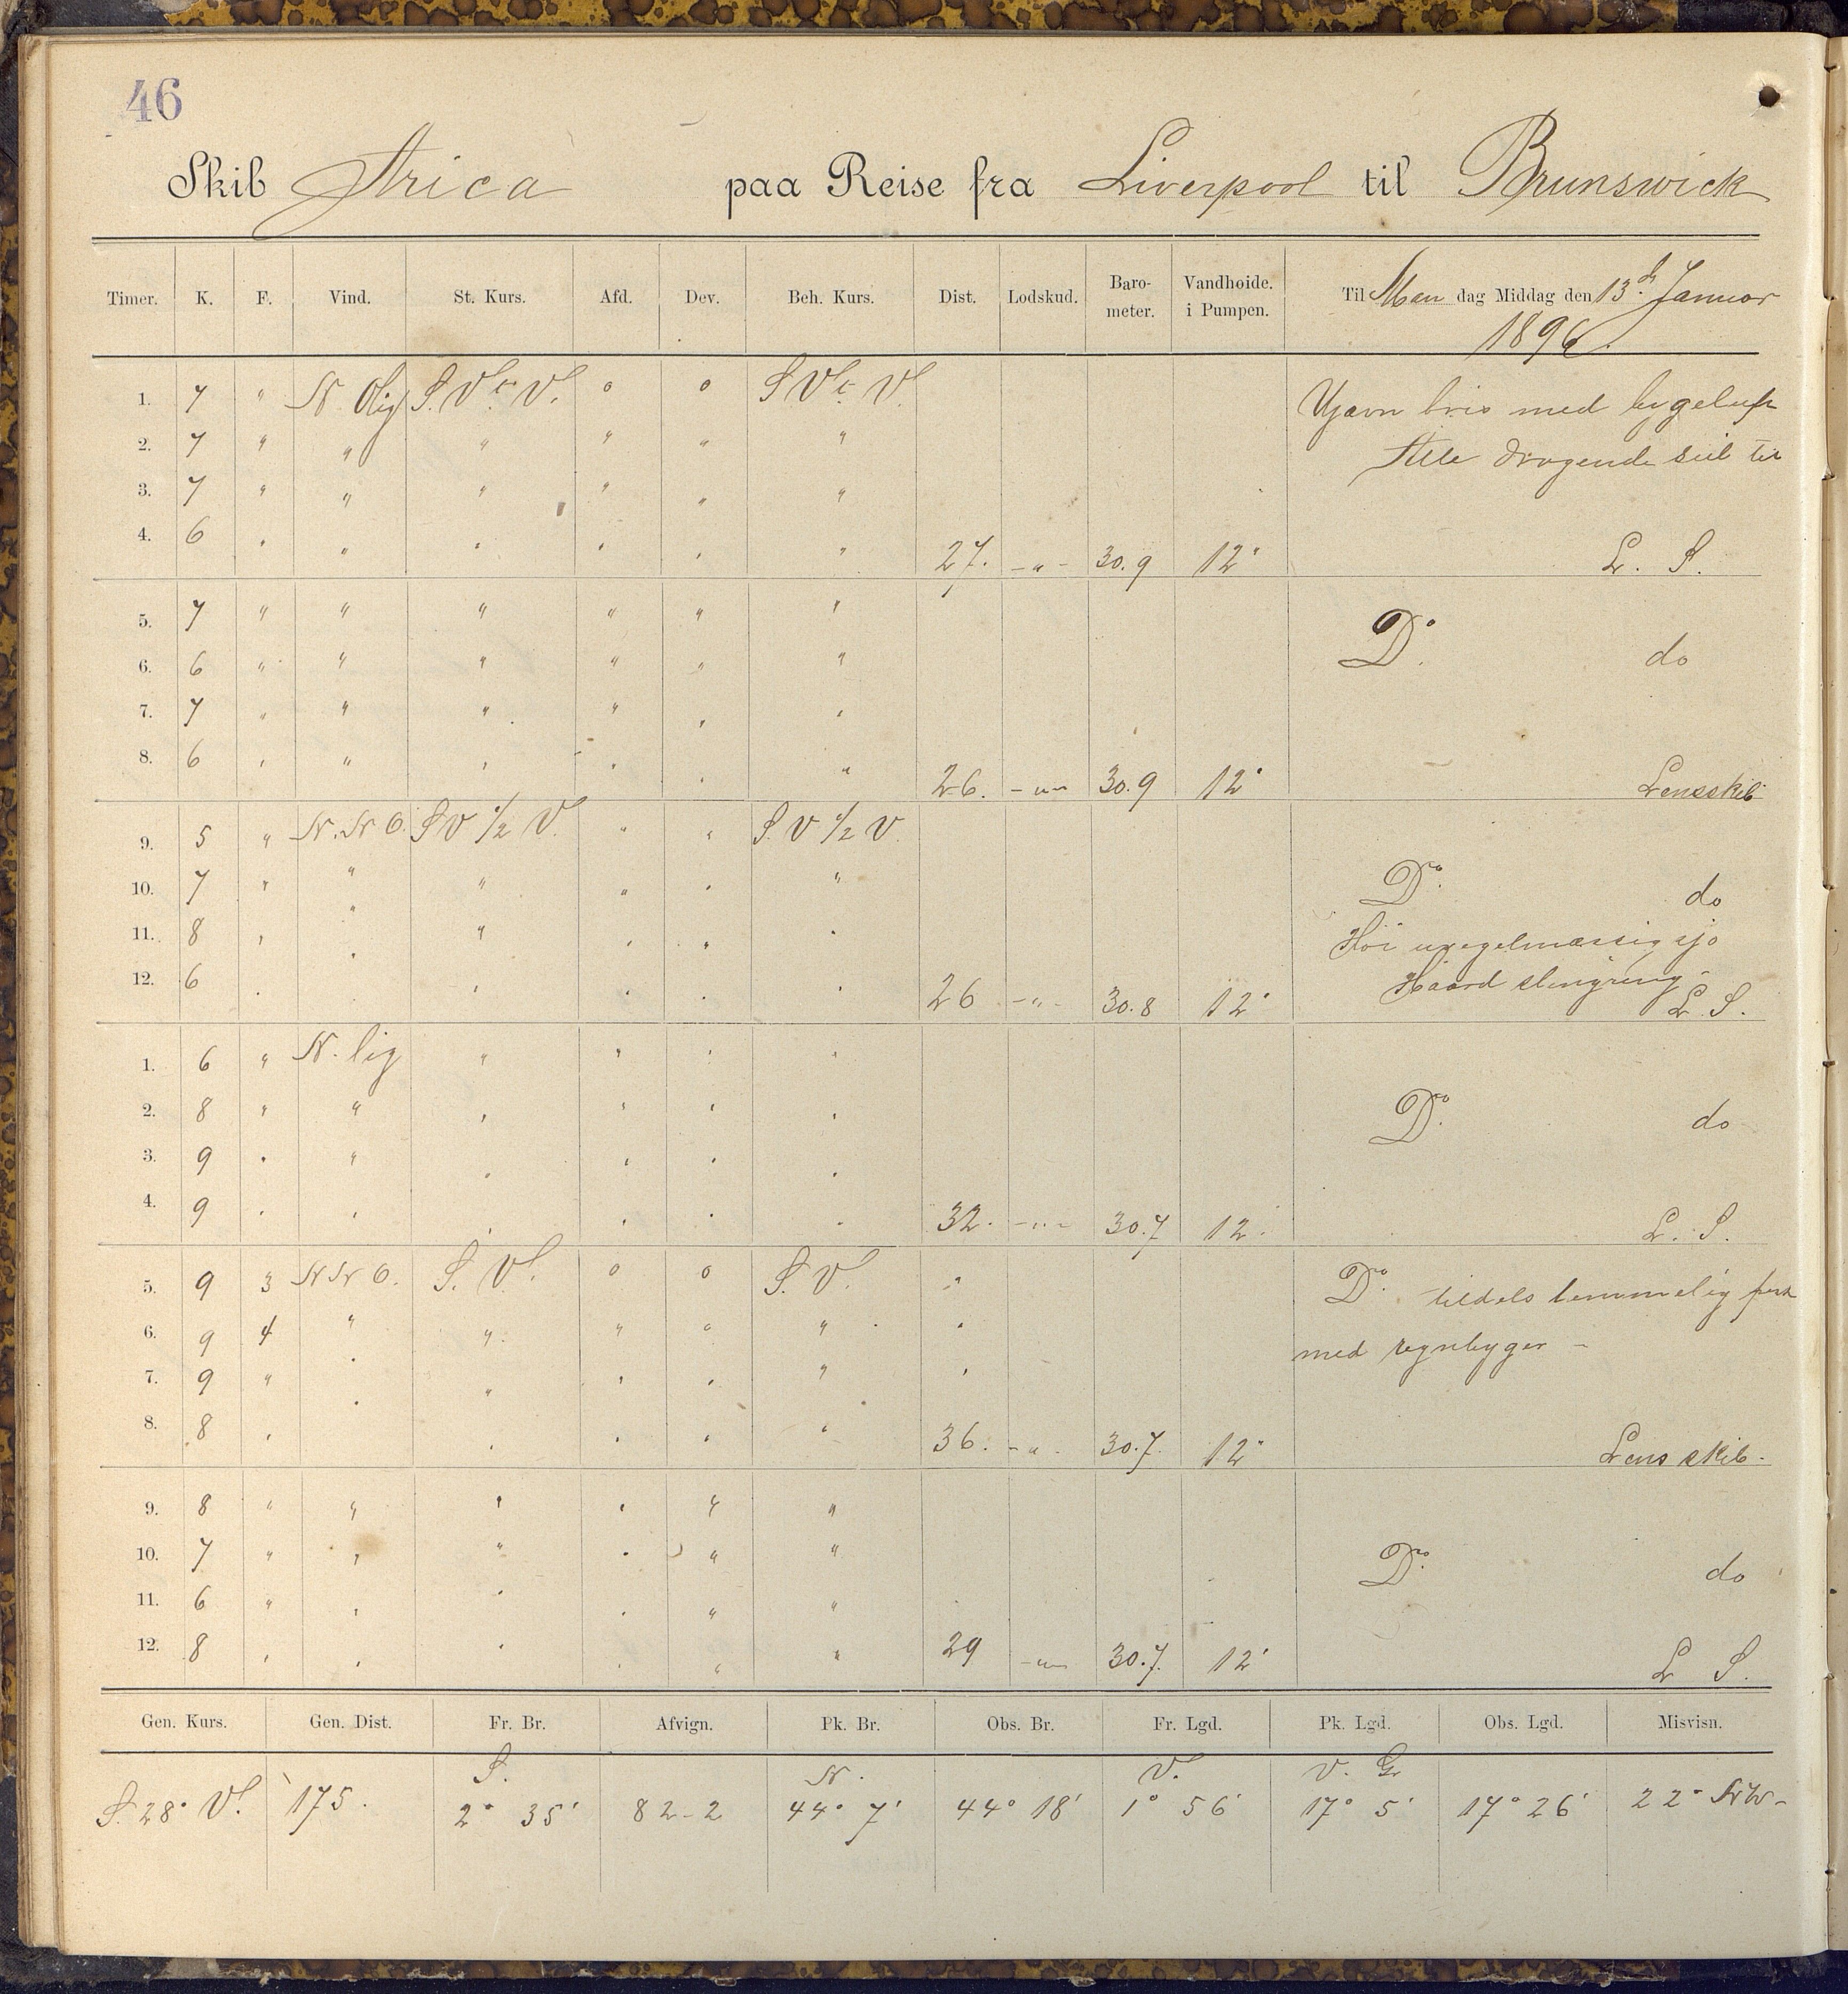 46
Skib Arica paa Reise fra Liverpool til Brunswick
Timer. K. F. Vind. St. Kurs. Afd. Dev. Beh. Kurs. Dist. Lodskud. Baro-meter. Vandhøide. i Pumpen. Til Man dag Middag den 13de Januar
1896.
1. 7 " N. Olig S. V t. V. o o S V t. V. Ujævn bris med bygeluft
2. 7 " " " " " " Alle dragende seil til
3. 7 " " " " " "
4. 6 " " " " " " 27. -"- 30.9 12" L. S.
5. 7 " " " " " " Do. do
6. 6 " " " " " "
7. 7 " " " " " "
8. 6 " " " " " " 26. -"- 30.9 12" Lensskib
9. 5 " N. N O. S V 1/2 V. " " S. V 1/2 V.
10. 7 " " " " " " Do. do
11. 8 " " " " " " Høi uregelmæssig sjø
12. 6 " " " " " " 26 -"- 30.8 12" Haard slingring L. S.
1. 6 " N. lig " " " "
2. 8 " " " " " " Do. do
3. 9 " " " " " "
4. 9 " " " " " " 32. -"- 30.7 12" L. S.
5. 9 3 N N O. S. V. o o S. V. " Do. tildels temmelig
6. 9 4 " " " " " " med regnbyger -
7. 9 " " " " " " "
8. 8 " " " " " " 36. -"- 30.7. 12" Lens skib.
9. 8 " " " " " "
10. 7 " " " " " " Do. do
11. 6 " " " " " "
12. 8 " " " " " " 29 -"- 30.7. 12" L S.
Gen. Kurs. Gen. Dist. Fr. Br. Afvign. Pk. Br. Obs. Br. Fr. Lgd. Pk. Lgd. Obs. Lgd. Misvisn.
S. N. V. V. G
S. 28° V. 175. 2° 35' 82-2 44° 7' 44° 18' 1° 56' 17° 5' 17° 26' 22° NW-